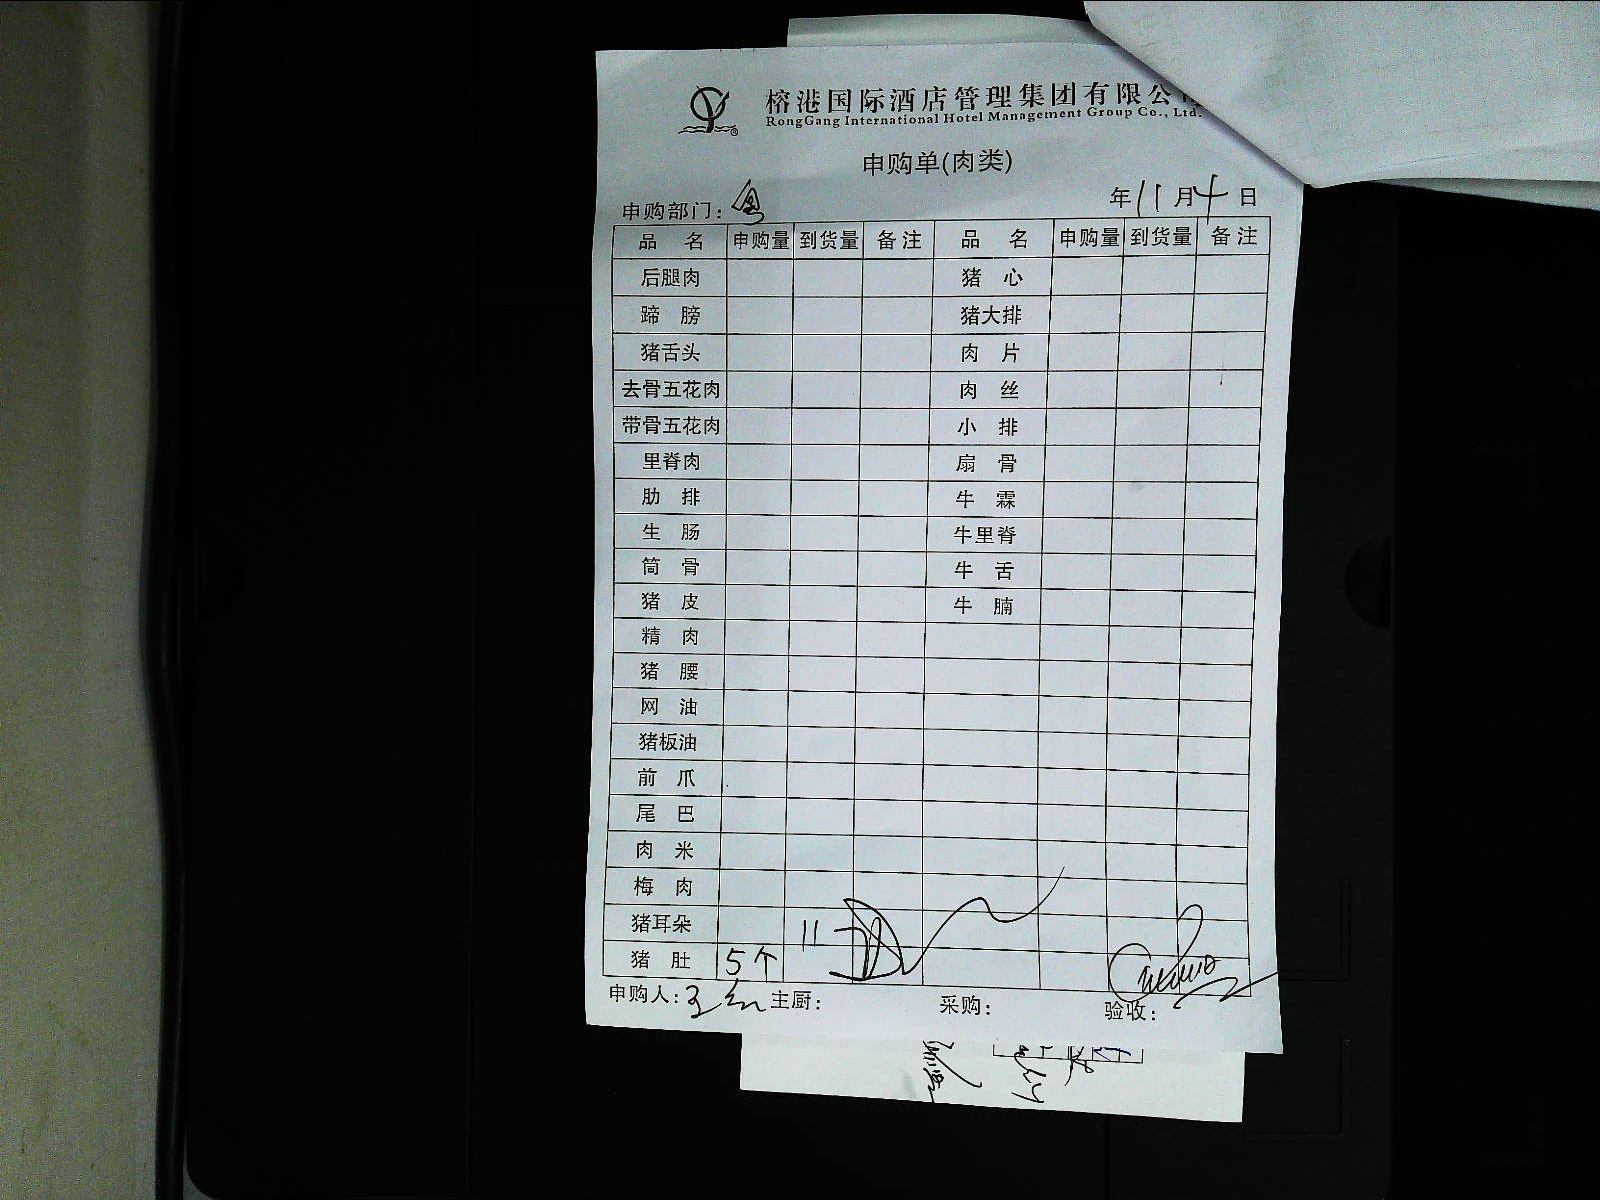 榕港国际酒店管理集团有限公
RongGang International Hotel Management Group Co., Ltd.
申购单(肉类)
申购部门：
年11月十日
品 名 申购量 到货量 备注 品 名 申购量 到货量 备注
后腿肉 猪 心
蹄 膀 猪大排
猪舌头 肉 片
去骨五花肉 肉 丝
带骨五花肉 小 排
里脊肉 扇 骨
肋 排 牛 霖
生 肠 牛里脊
筒 骨 牛 舌
猪 皮 牛 腩
精 肉
猪 腰
网 油
猪板油
前 爪
尾 巴
肉 米
梅 肉
猪耳朵 11
猪 肚 5个
申购人： 主厨： 采购： 验收：